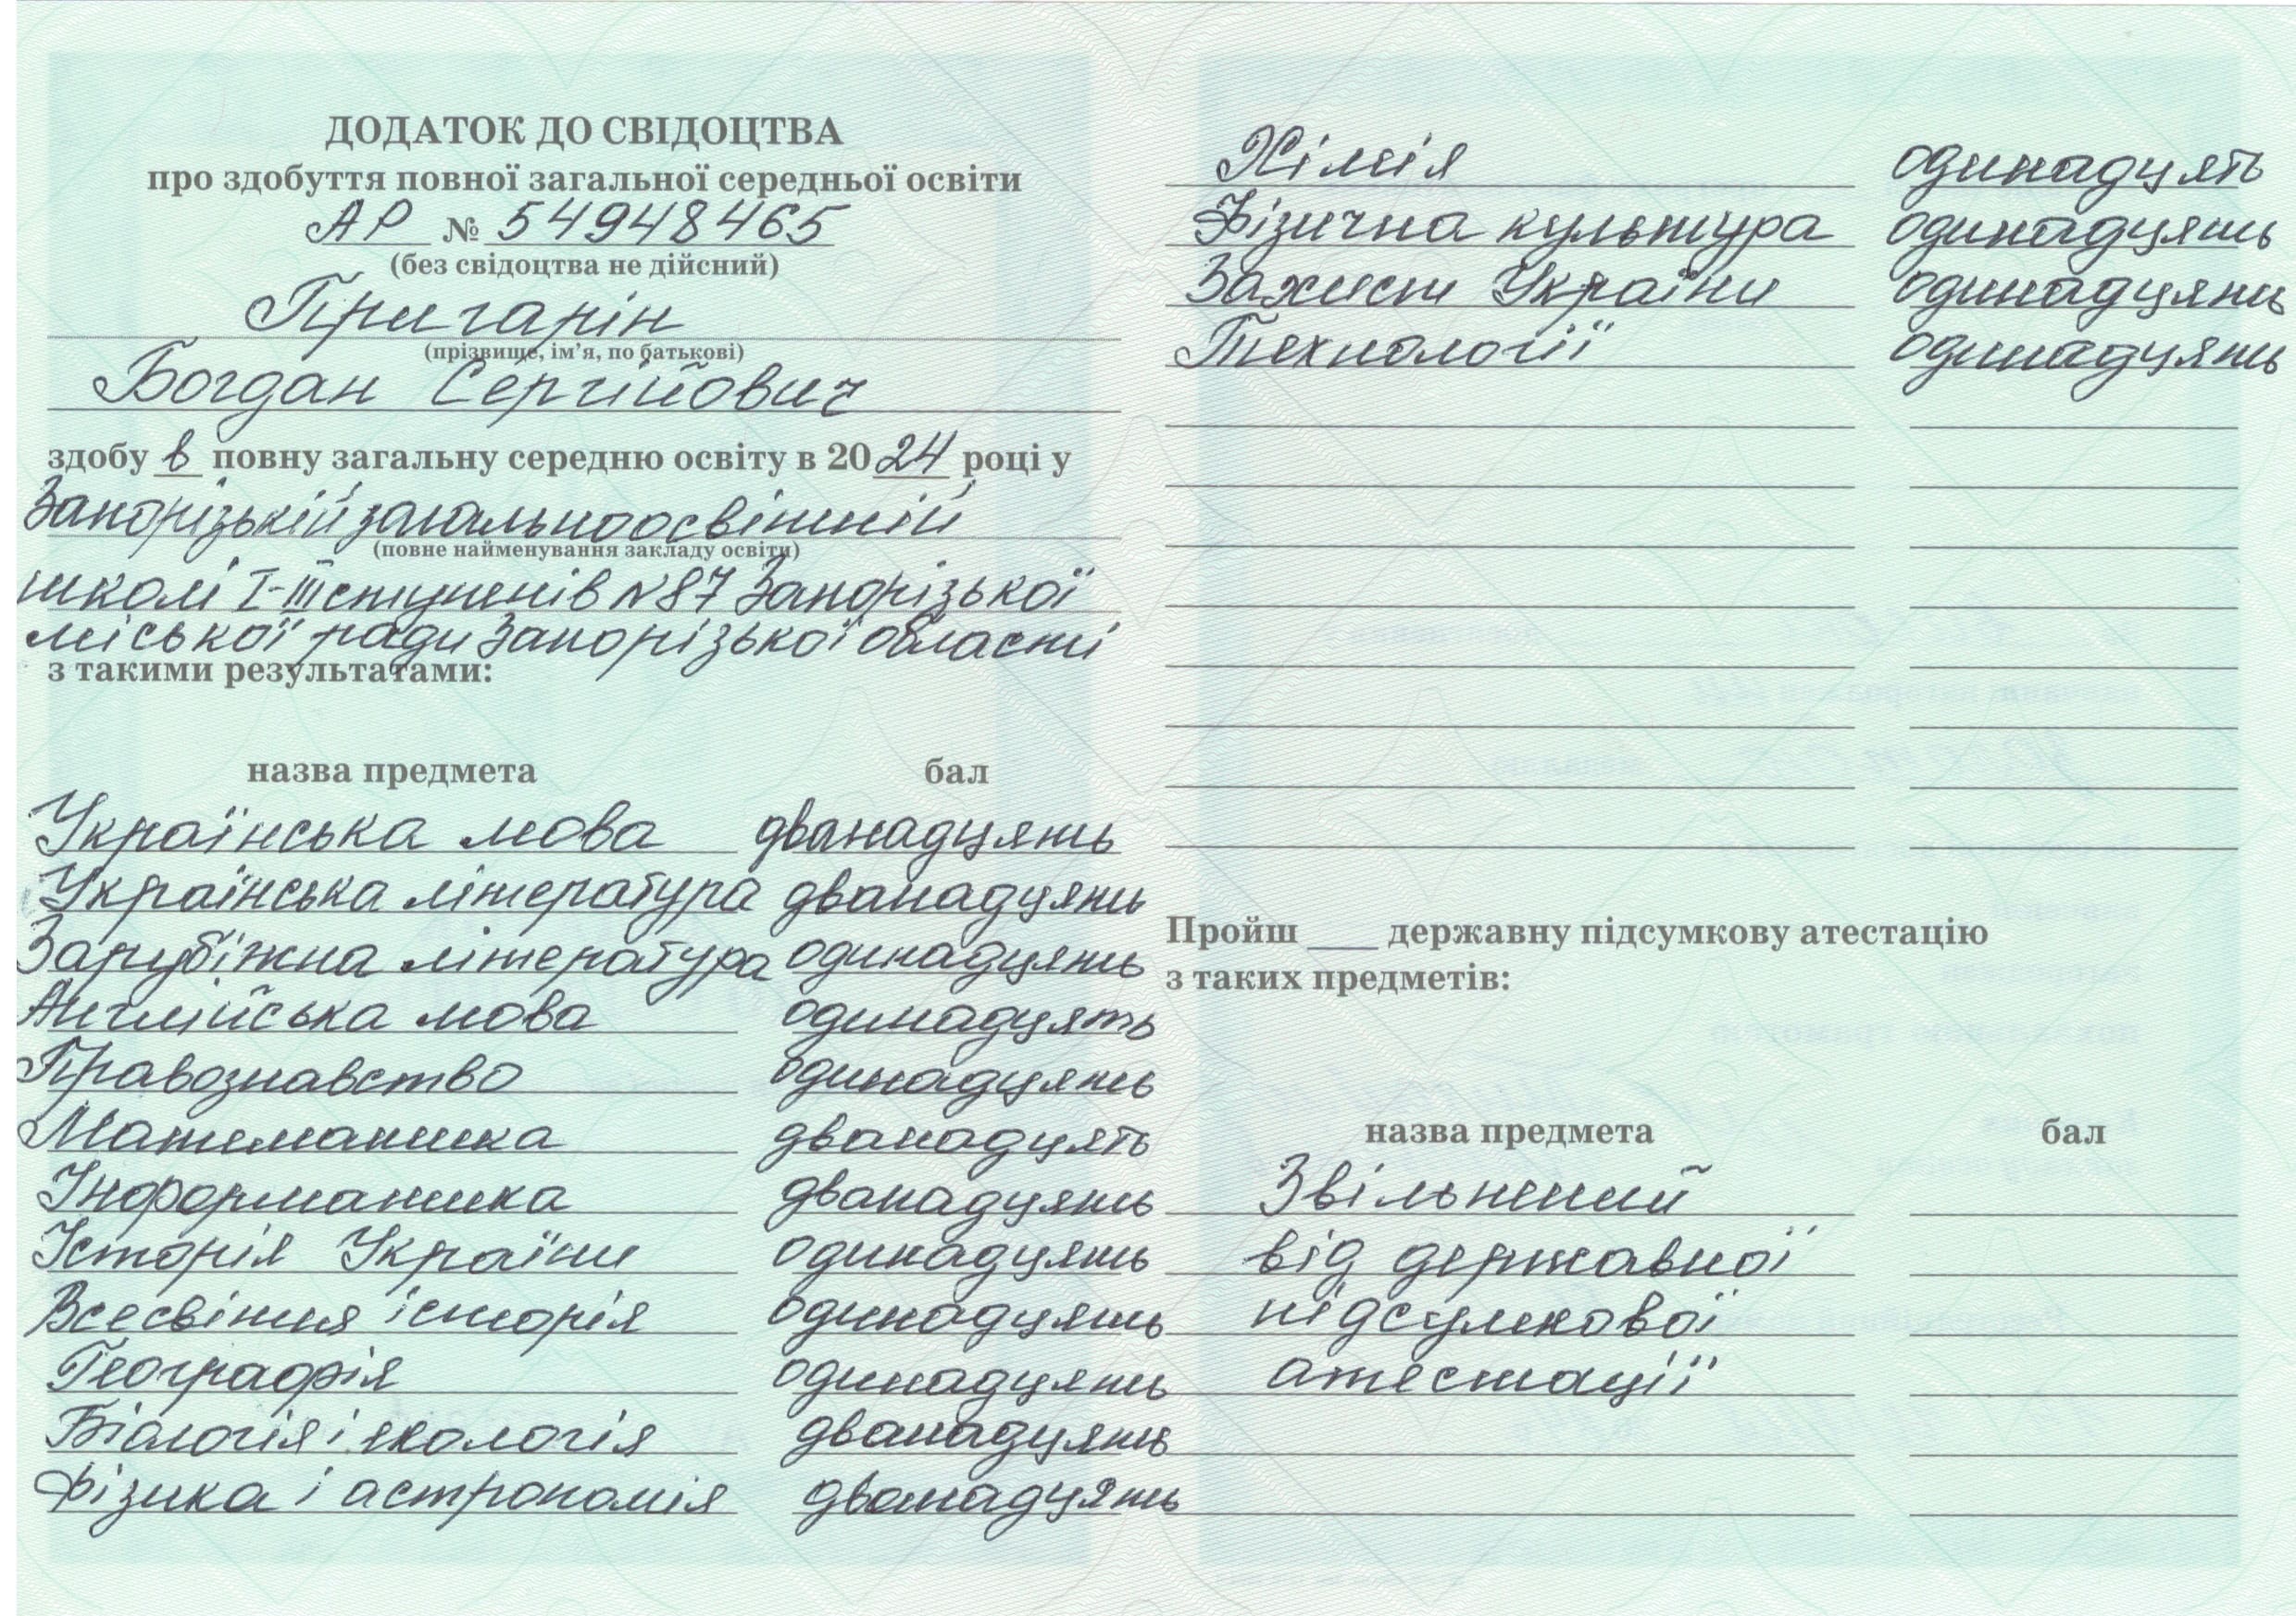 ДОДАТОК ДО СВІДОЦТВА
про здобуття повної загальної середньої освіти
АР № 54948465
(без свідоцтва не дійсний)
Пригарін
(прізвище, ім’я, по батькові)
Богдан Сергійович
здобу в повну загальну середню освіту в 2024 році у
Запорізькій загальноосвітній
(повне найменування закладу освіти)
школі І-ІІІ ступенів №87 Запорізької
міської ради Запорізької області
з такими результатами:
назва предмета бал
Українська мова дванадцять
Українська література дванадцять
Зарубіжна література одинадцять
Англійська мова одинадцять
Правознавство одинадцять
Математика дванадцять
Інформатика дванадцять
Історія України одинадцять
Всесвітня історія одинадцять
Географія одинадцять
Біологія і екологія дванадцять
Фізика і астрономія дванадцять
Хімія одинадцять
Фізична культура одинадцять
Захист України одинадцять
Технології одинадцять
Пройш ___ державну підсумкову атестацію
з таких предметів:
назва предмета бал
Звільнений
від державної
підсумкової
атестації